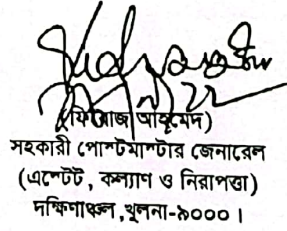 (ফিরোজ আহমেদ)
সহকারী পোস্টমাস্টার জেনারেল
(এস্টেট, কল্যাণ ও নিরাপত্তা)
দক্ষিণাঞ্চল, খুলনা-৯০০০।